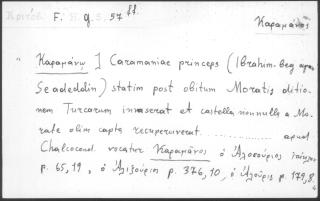 F. g. 57 ff.
Καραμάνος
"Καραμάνῳ] Caramaniae princeps (Ibrahim-Beg apud
Seadeddin) statim post obitum Moratis ditio-
nem Turcarum invaserat et castella nonnulla a Mo-
rate olim capta recuperuverat ............ apud
Chalcocond. vocatur Καραμάνος ὁ Ἀλοσούριος
p. 65,19, ὁ Ἀλιζούριος p. 376,10, ὁ Ἀλούρις p. 179,8"